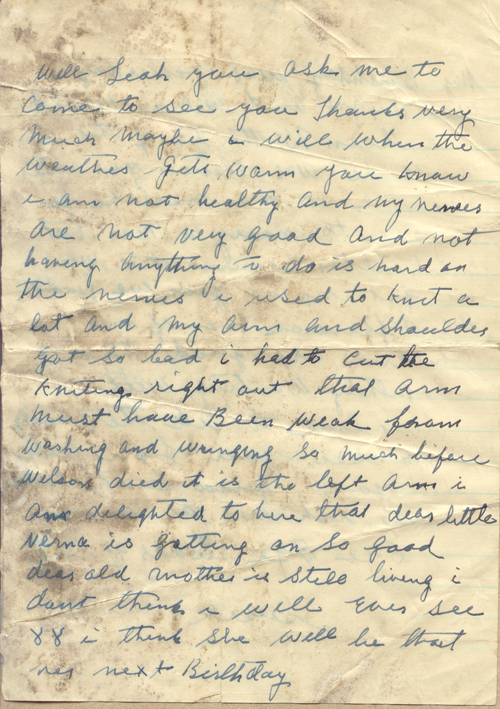 Well Leah you ask me to
Come to see you Thanks very
Much Maybe i will when the
weather gets warm you know
i am not healthy and my nerves
are not very good and not
having anything to do is hard on
the nerves i used to knit a
lot and my arm and shoulder
got so bad i had to cut the
knitting right out that arm
must have Been weak from
washing and wringing so much before
Wilson died it is the left arm i
am delighted to here that dear little
Verna is getting on so good
dear old mother is still living i
dont think i will Ever see
88 i think she will be that
her next Birthday